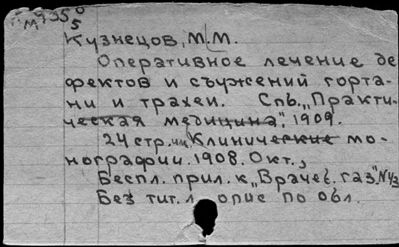 Кузнецов, М.М.
Оперативное лечение де
фектов и съужений горта-
ни и трахеи. Спб. „Практи-
ческая медицина", 1909.
24 стр. Клинические мо-
нографии. 1908. Окт.,
Беспл. прил. к „Врачеб. газ." N 43
Без тит. л опис по обл.